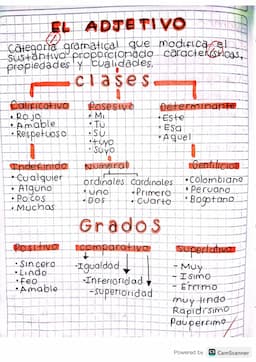 EL ADJETIVO
Categoria gramatical que modifica el
sustantivo proporcionado características,
propiedades y cualidades.
Clases
Calificativo
• Rojo
• Amable
• Respetuoso
Posesivo
• Mi
• Tu
• Su
• tuyo
• Suyo
Determinante
• Este
• Esa
• Aquel
Indefinido
• Cualquier
• Alguno
• Pocos
• Muchas
Numeral
ordinales Cardinales
• uno • Primero
• Dos • Cuarto
Gentilicio
• Colombiano
• Peruano
• Bogotano
Grados
Positivo
• Sincero
• Lindo
• Feo
• Amable
Comparativo
-Igualdad
-Inferioridad
-superioridad
Superlativo
- Muy
- Isimo
- Érrimo
muy lindo
Rapidisimo
Pauperrimo
Powered by CS CamScanner